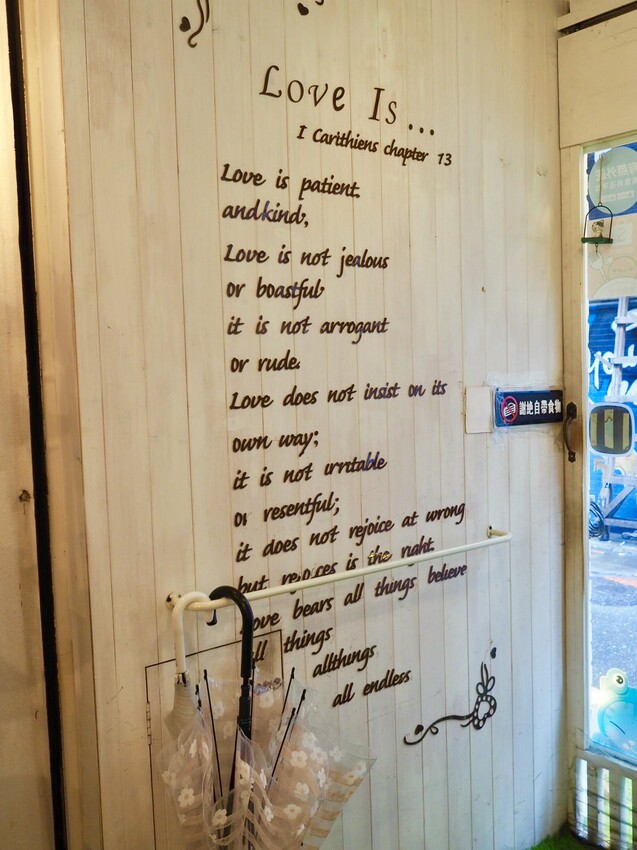 Love Is...
I Carithiens chapter 13
Love is patient.
and kind,
Love is not jealous
or boastful
it is not arrogant
or rude.
Love does not insist on its
own way;
it is not irritable
or resentful;
it does not rejoice at wrong
but rejoices is the right.
Love bears all things believe
all things
allthings
all endless
謝絕自帶食物